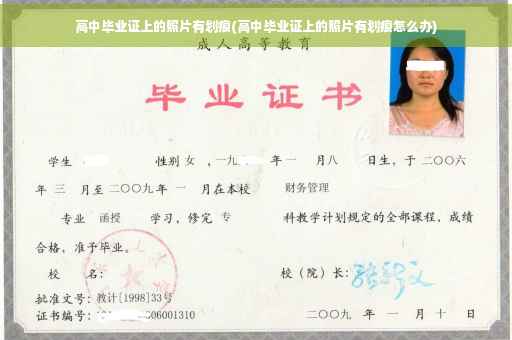 高中毕业证上的照片有划痕(高中毕业证上的照片有划痕怎么办)
成人高等教育
毕业证书
学生 性别 女 ，一九 年 一 月八 日生，于 二〇〇六
年 三 月至 二〇〇九 年 一 月在本校 财务管理
专业 函授 学习，修完 专 科教学计划规定的全部课程，成绩
合格，准予毕业。
校 名： 校（院）长：
批准文号：教计[1998]33号
证书编号： 006001310 二〇〇九 年 一 月 十 日